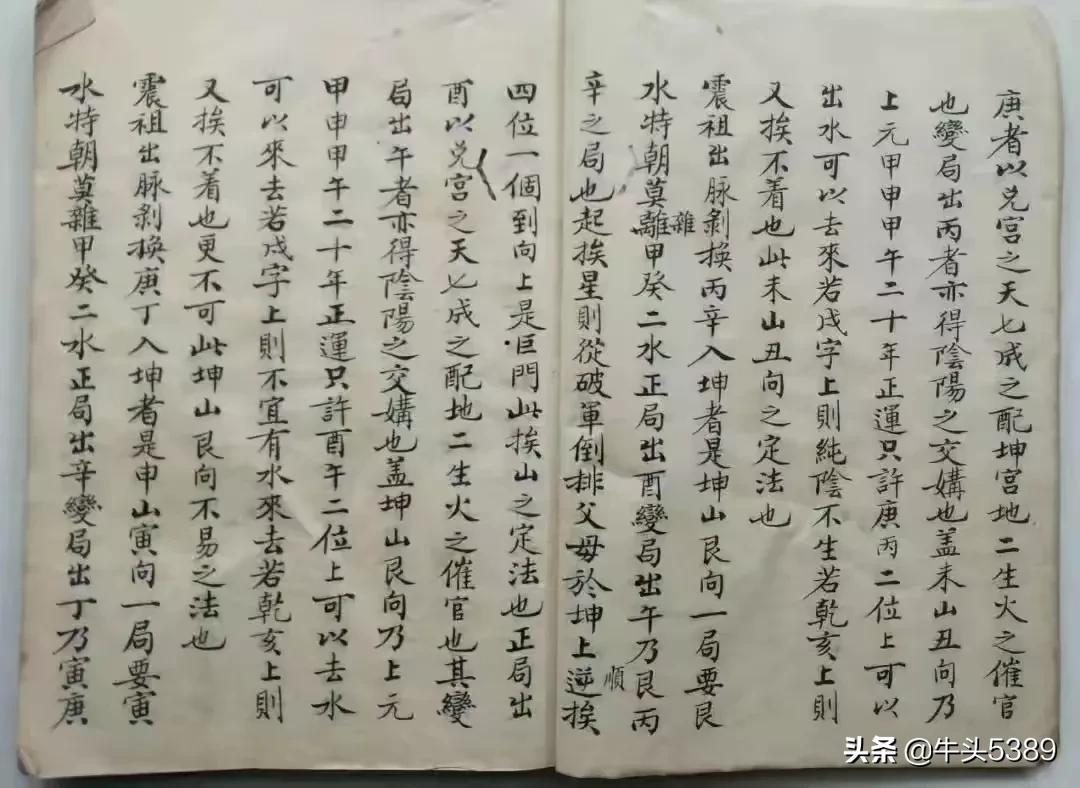 庚者以兌宮之天七成之配坤宮地二生火之催官
也變局出丙者亦得陰陽之交媾也盖未山丑向乃
上元甲申甲午二十年正運只許庚丙二位上可以
出水可以去來若戌字上則純陰不生若乾亥上則
又挨不着也此未山丑向之定法也
震祖出脉剝換丙辛入坤者是坤山艮向一局要艮
水特朝莫離雜甲癸二水正局出酉變局出午乃艮丙
辛之局也起挨星則從破軍倒排父母於坤上逆順挨
四位一個到向上是巨門此挨山之定法也正局出
酉以兌宮之天七成之配地二生火之催官也其變
局出午者亦得陰陽之交媾也盖坤山艮向乃上元
甲申甲午二十年正運只許酉午二位上可以去水
可以來去若戌字上則不宜有水來去若乾亥上則
又挨不着也更不可此坤山艮向不易之法也
震祖出脉剝換庚丁入坤者是申山寅向一局要寅
水特朝莫雜甲癸二水正局出辛變局出丁乃寅庚
头条 @牛头5389